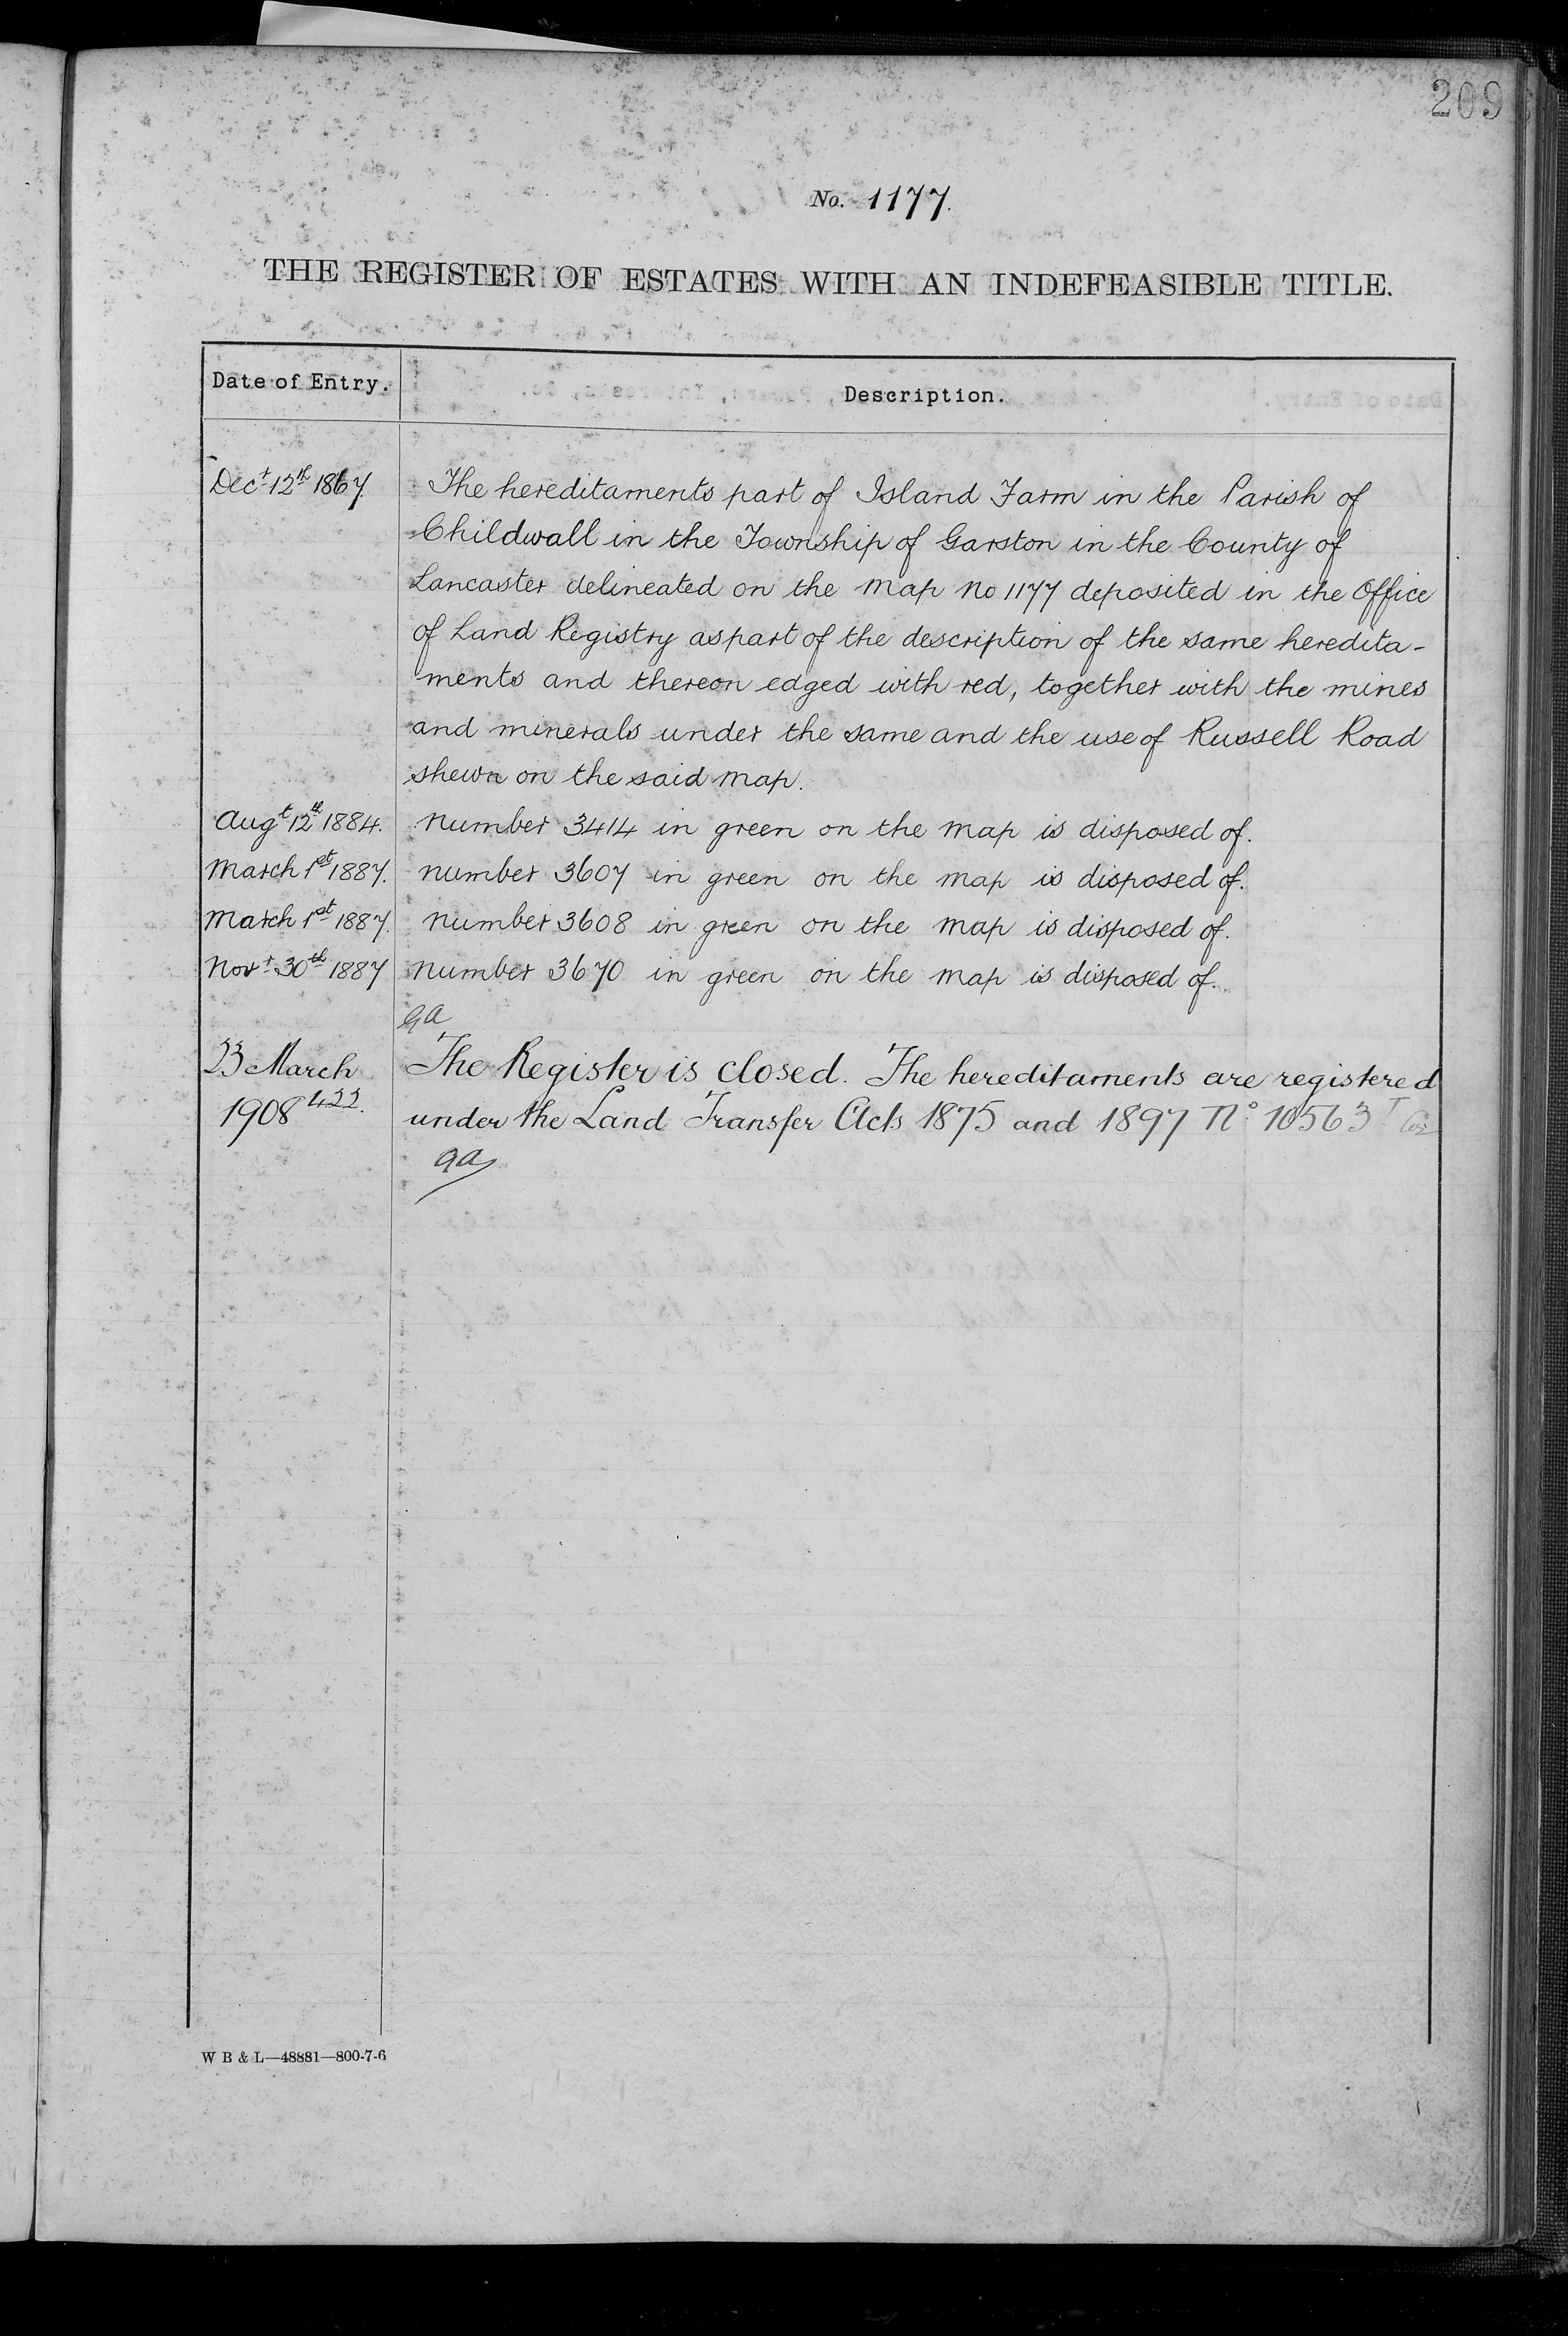 209
No. 1177.
THE REGISTER OF ESTATES WITH AN INDEFEASIBLE TITLE.
Date of Entry. Description.
Decr 12th 1867. The hereditaments part of Island Farm in the Parish of
Childwall in the Township of Garston in the County of
Lancaster delineated on the map No 1177 deposited in the Office
of Land Registry as part of the description of the same heredita-
ments and thereon edged with red, together with the mines
and minerals under the same and the use of Russell Road
shewn on the said map.
Augt 12th 1884. Number 3414 in green on the map is disposed of.
March 1st 1887. Number 3607 in green on the map is disposed of.
March 1st 1887. Number 3608 in green on the map is disposed of.
Novr 30th 1887 Number 3670 in green on the map is disposed of.
ga
23 March The Register is closed. The hereditaments are registered
1908 422. under the Land Transfer Acts 1875 and 1897 No 10563
ga
W B & L—48881—800-7-6